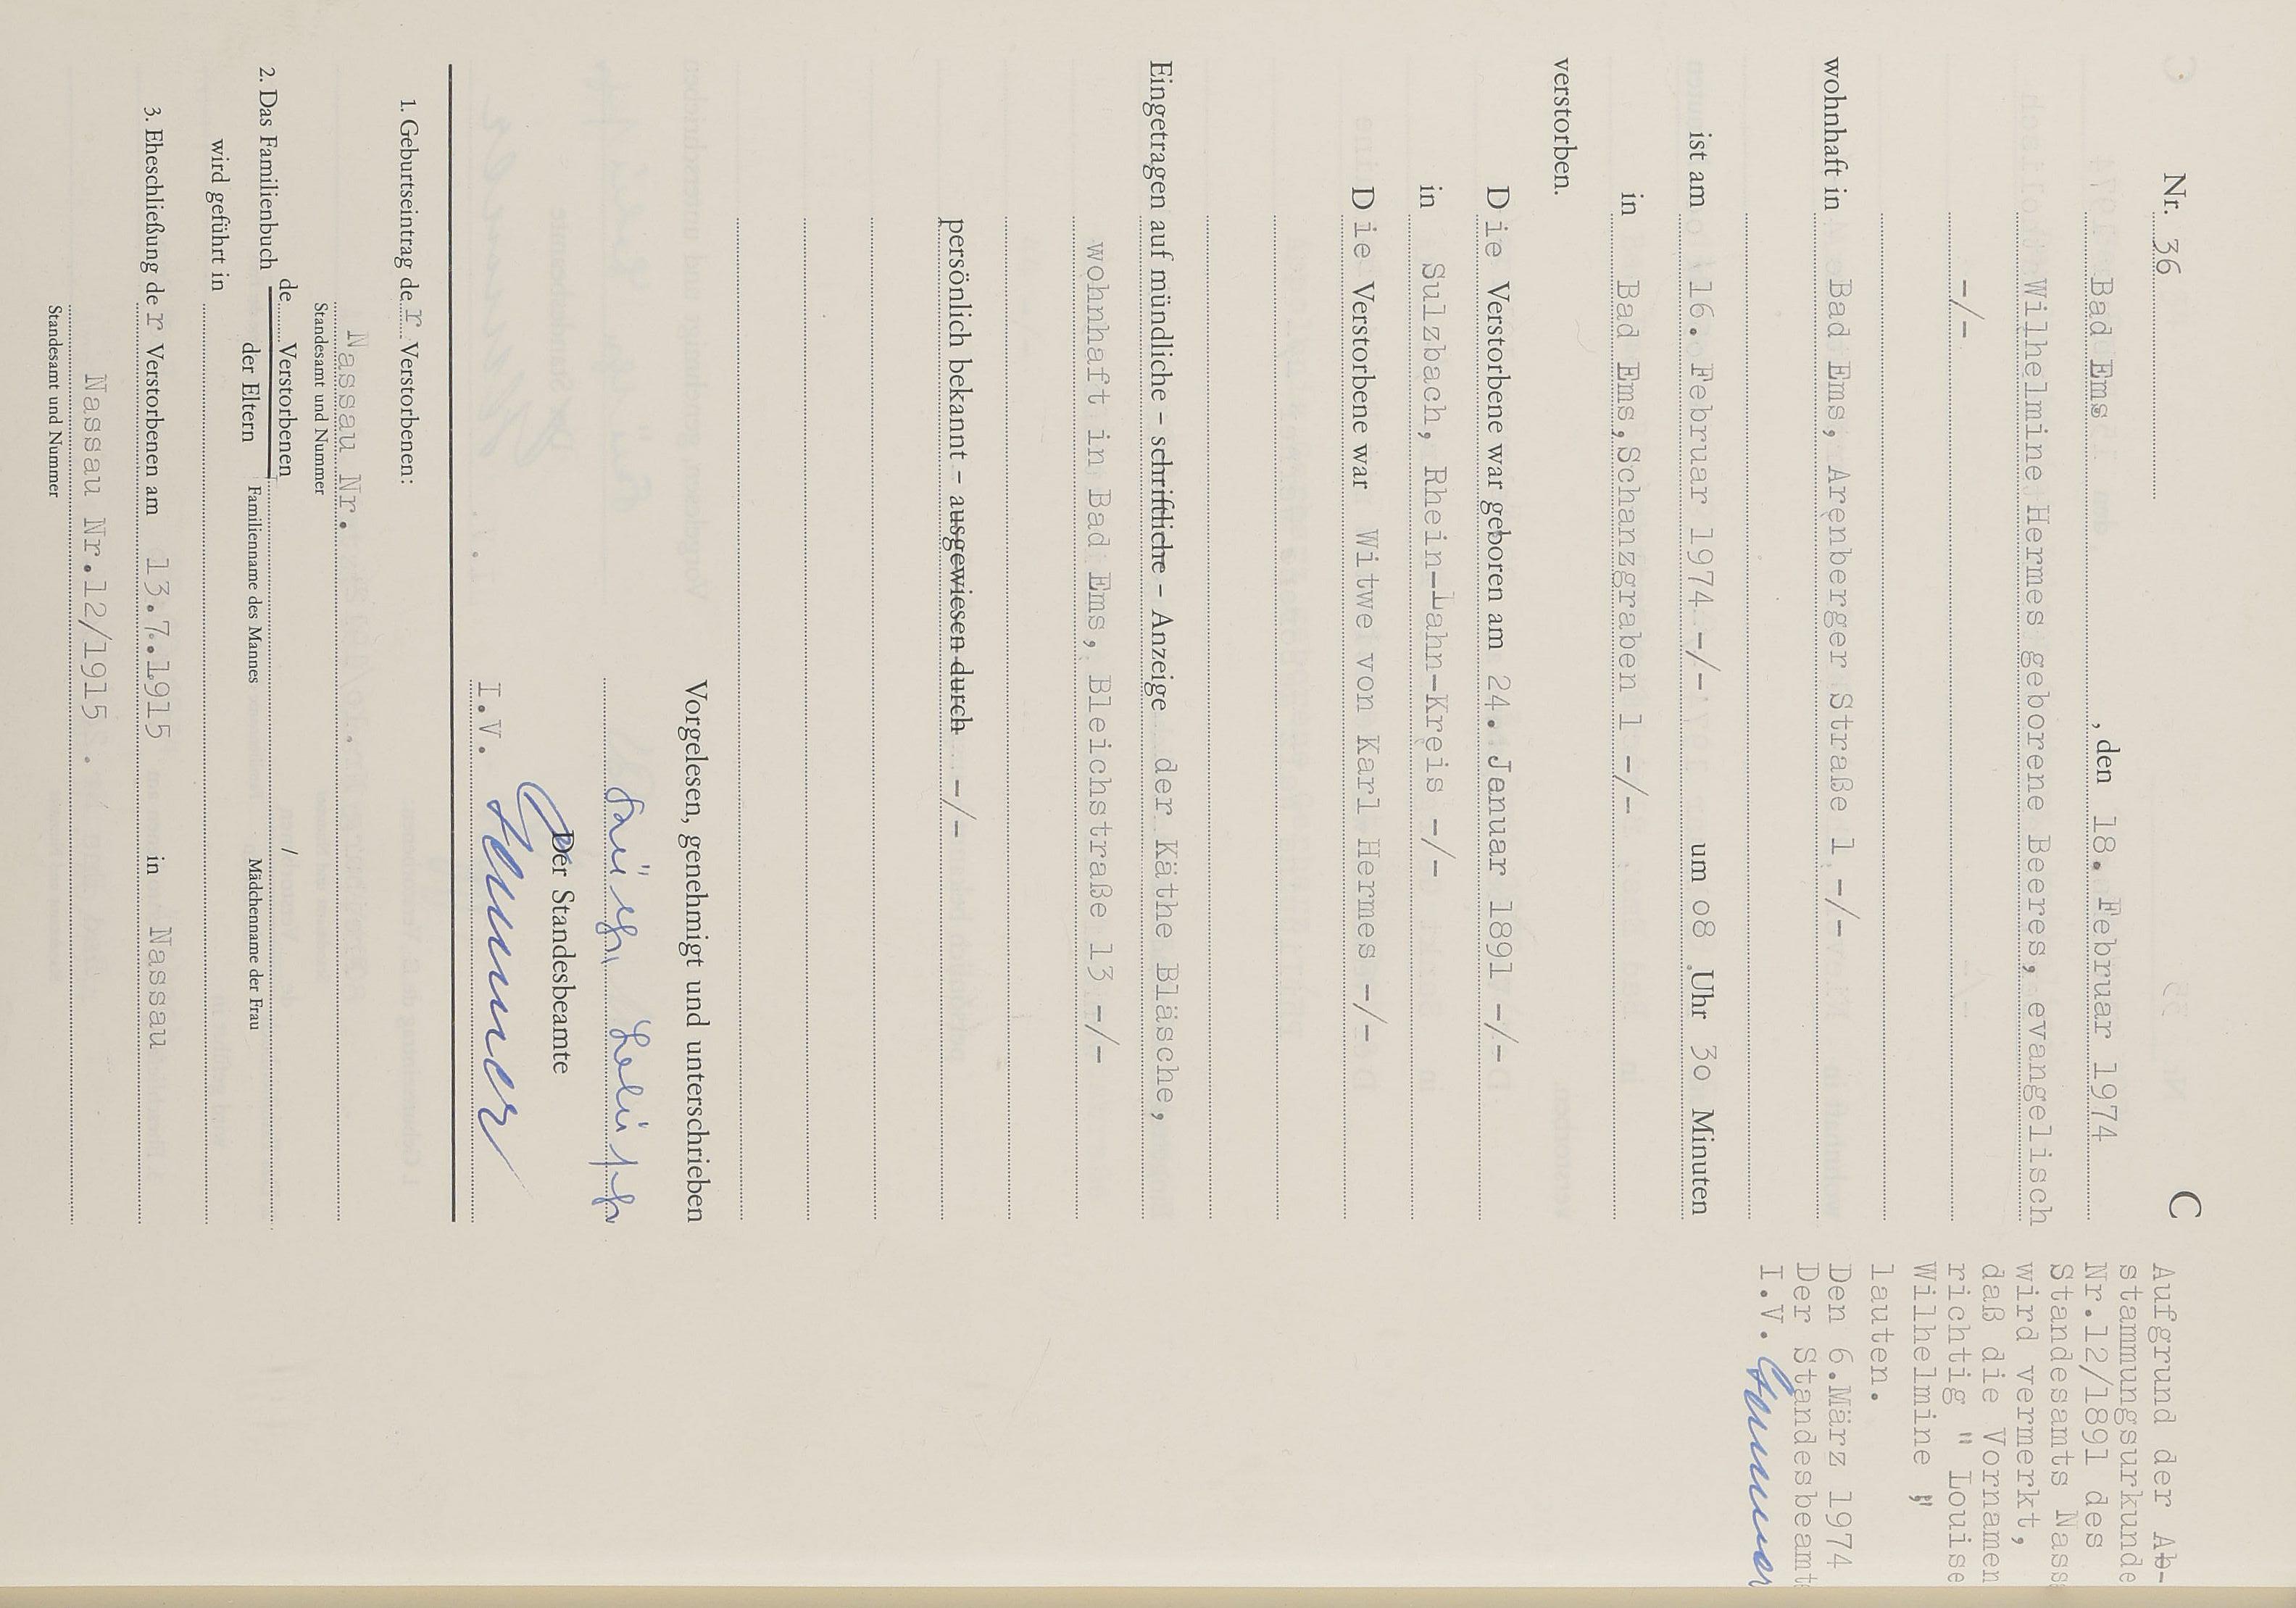 Nr. 36
C
Bad Ems, den 18. Februar 1974
Wilhelmine Hermes geborene Beeres, evangelisch
-/-
wohnhaft in Bad Ems, Arenberger Straße 1 -/-
ist am 16. Februar 1974 -/- um 08 Uhr 30 Minuten
in Bad Ems, Schanzgraben 1 -/-
verstorben.
Die Verstorbene war geboren am 24. Januar 1891 -/-
in Sulzbach, Rhein-Lahn-Kreis -/-
Die Verstorbene war Witwe von Karl Hermes -/-
Eingetragen auf mündliche – schriftliche – Anzeige der Käthe Bläsche,
wohnhaft in Bad Ems, Bleichstraße 13 -/-
persönlich bekannt – ausgewiesen durch -/-
Vorgelesen, genehmigt und unterschrieben
Der Standesbeamte
I.V.
1. Geburtseintrag der Verstorbenen:
Nassau Nr.
Standesamt und Nummer
2. Das Familienbuch de Verstorbenen /
der Eltern Familienname des Mannes Mädchenname der Frau
wird geführt in
3. Eheschließung der Verstorbenen am 13.7.1915 in Nassau
Nassau Nr.12/1915
Standesamt und Nummer
Aufgrund der Ab-
stammungsurkunde
Nr.12/1891 des
Standesamts Nass
wird vermerkt,
daß die Vornamen
richtig " Louise
Wilhelmine "
lauten.
Den 6.März 1974
Der Standesbeamt
I.V.